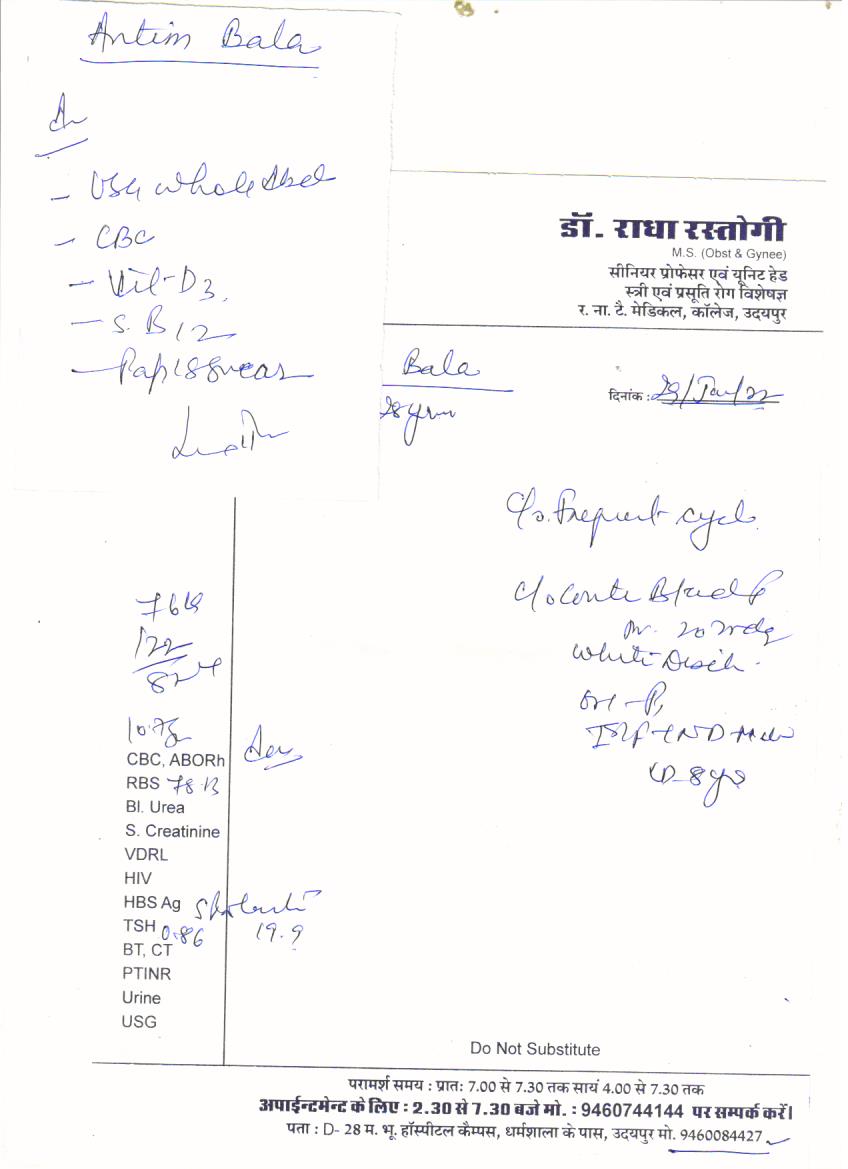 Antim Bala
- USG whole Abd
- CBC
- Vit-D3,
- S. B12
- Pap smear
डॉ. राधा रस्तोगी
M.S. (Obst & Gynee)
सीनियर प्रोफेसर एवं यूनिट हेड
स्त्री एवं प्रसूति रोग विशेषज्ञ
र. ना. टै. मेडिकल, कॉलेज, उदयपुर
Bala
दिनांक : 29/Jan/22
28 yrs
C/o. Frequent cycle
C/o
White Disch.
76
122
82
CBC, ABORh
RBS 78.13
Bl. Urea
S. Creatinine
VDRL
HIV
HBS Ag
TSH 0.86 19.9
BT, CT
PTINR
Urine
USG
Do Not Substitute
परामर्श समय : प्रातः 7.00 से 7.30 तक सायं 4.00 से 7.30 तक
अपाईन्टमेन्ट के लिए : 2.30 से 7.30 बजे मो. : 9460744144 पर सम्पर्क करें।
पता : D- 28 म. भू. हॉस्पीटल कैम्पस, धर्मशाला के पास, उदयपुर मो. 9460084427